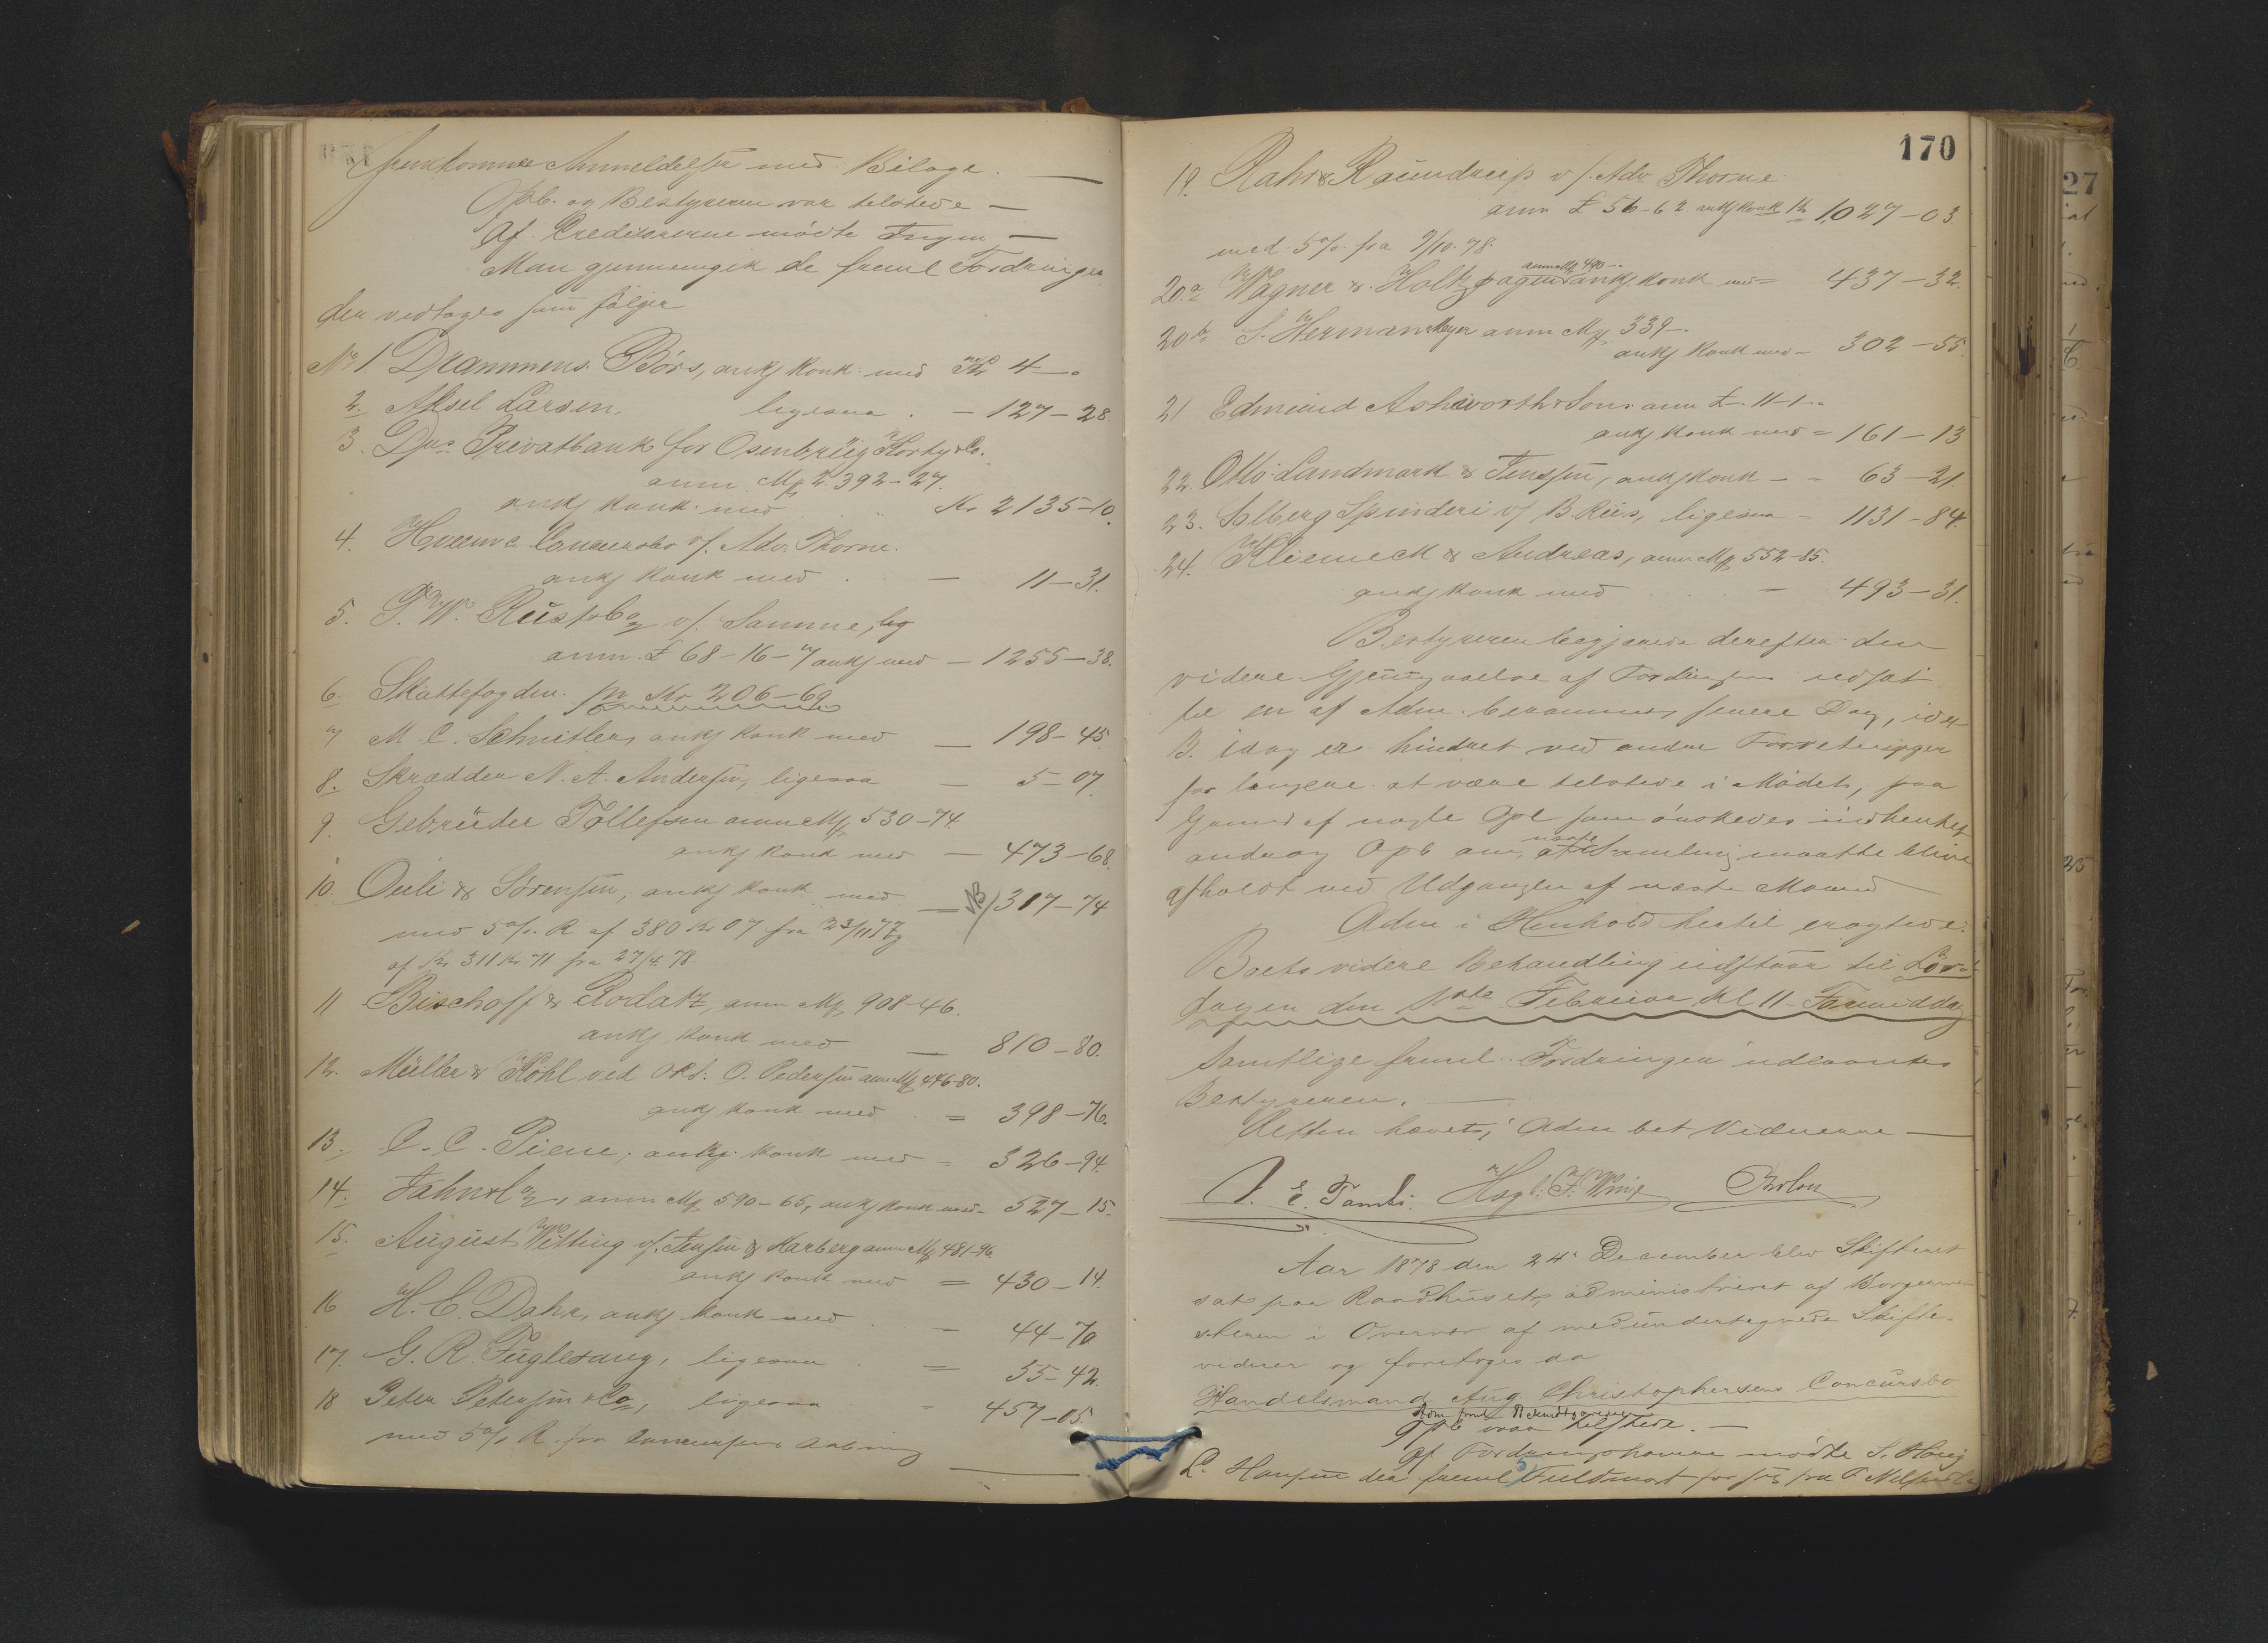 fremkomne Anmeldelser med Bilage.
Opb. og Bestyreren var tilstede —
Af Creditorerne mødte Ingen —
Man gjennemgik de freml Fordringer
der vedtages som følger
No 1 Drammens Børs, ankj konk med Kr 4 — "
2. Aksel Larsen, ligesaa . — 127 — 28.
3. Dms Privatbank for Osenbrüg Horty & Co.
anm. Mk 2.392 — 27.
ankj konk med Kr 2135 — 10.
4. Concursbo v/. Adv. Thorne.
ankj konk med . — 11 — 31.
5. P. W. Rust & Co v/. Samme,
anm. £ 68 — 16 — 7 ankj med — 1255 — 38.
6. Skattefogden. pr Kr 206 — 69
7 M. C. Schnitler, ankj konk med — 198 — 45
8. Skrædder N. A. Andersen, ligesaa — 5 — 07.
9. Gebrüder Tollefsen anm Mk 530 — 74.
ankj konk med — 473 — 68.
10. Ouli & Sørensen, ankj konk med — NB/ 317 — 74
med 5 % R af 380 Kr 07 fra 23/11 77 og
af Kr 311 Kr 71 fra 27/4. 78.
11 Bischoff & Rodatz, anm Mk 908 — 46.
ankj konk med — 810 — 80.
12. Müller & Kohl ved O. Pedersen anm Mk 446-80.
ankj konk med . = 398 — 76.
13. C. C. Piene, ankj. konk med — 326 — 94.
14. Jahn & Co, anm Mk 590 — 65, ankj konk med — 527 — 15.
15. August Witting v/. Jensen & Karberg anm Mk 481-96
ankj konk med = 430 — 14.
16 H. C. Dahr, ankj konk med . — 44 — 70
17. G. R. Fuglesang, ligesaa . = 55 — 42.
18 Peter Petersen & Co, ligesaa - 457 — 05.
med 5 % R. fra Concursens Aabning
170
19. Rahr & Raundrup v/. Adv Thorne.
anm £ 56 - 62 ankj konk Kr 1,027 — 03.
med 5 % fra 9/10. 78.
anm Mk 490 —
20.a Wagner & Holtz ankj konk med = 437 — 32.
20b S. Herman Meyer anm Mk 339 —.
ankj konk med — 302 — 55.
21 Edmund Ashworth & Sons anm £ 11 - 1 - "
ankj konk med = 161 — 13
22. Otto Landmark & Jenssen, ankj konk — - 63 — 21.
23. Solberg Spinderi v/ B. Rus, ligesaa — 1131 — 84.
24. Kliemeck & Andreas, anm Mk 552-85.
ankj konk med . . — 493 — 31.
Bestyreren begjærede derefter den
videre Gjennemgaaelse af Fordringerne udsat
til en af Adm. berammes senere Dag, idet
B. idag er hindret ved andre Forretninger
for længere at være tilstede i Mødet, paa
Grund af nogle Opl som ønskedes indhentet
androg Opb om, at næste Samling maatte blive
afholdt ved Udgangen af næste Maaned
Adm i Henhold hertil eragtede:
Boets videre Behandling udstaar til Lør-
dagen den 1ste Februar Kl 11 Formiddag
Samtlige freml. Fordringer udlaantes
Bestyreren. —
Retten hævet, Adm bet Vidnerne —
Aar 1878 den 24de December blev Skifteret
sat paa Raadhuset, administreret af Borgerme-
steren i Overvær af medundertegnede Skifte-
vidner og foretoges da
Handelsmand Aug Christophersens Concursbo
Adm freml Bekiendtgjørelsen
Opb var tilstede. —
Af Fordringshaverne mødte S. Høeg
L. Hansen der freml Fuldmagt for sig fra P. Nilsen